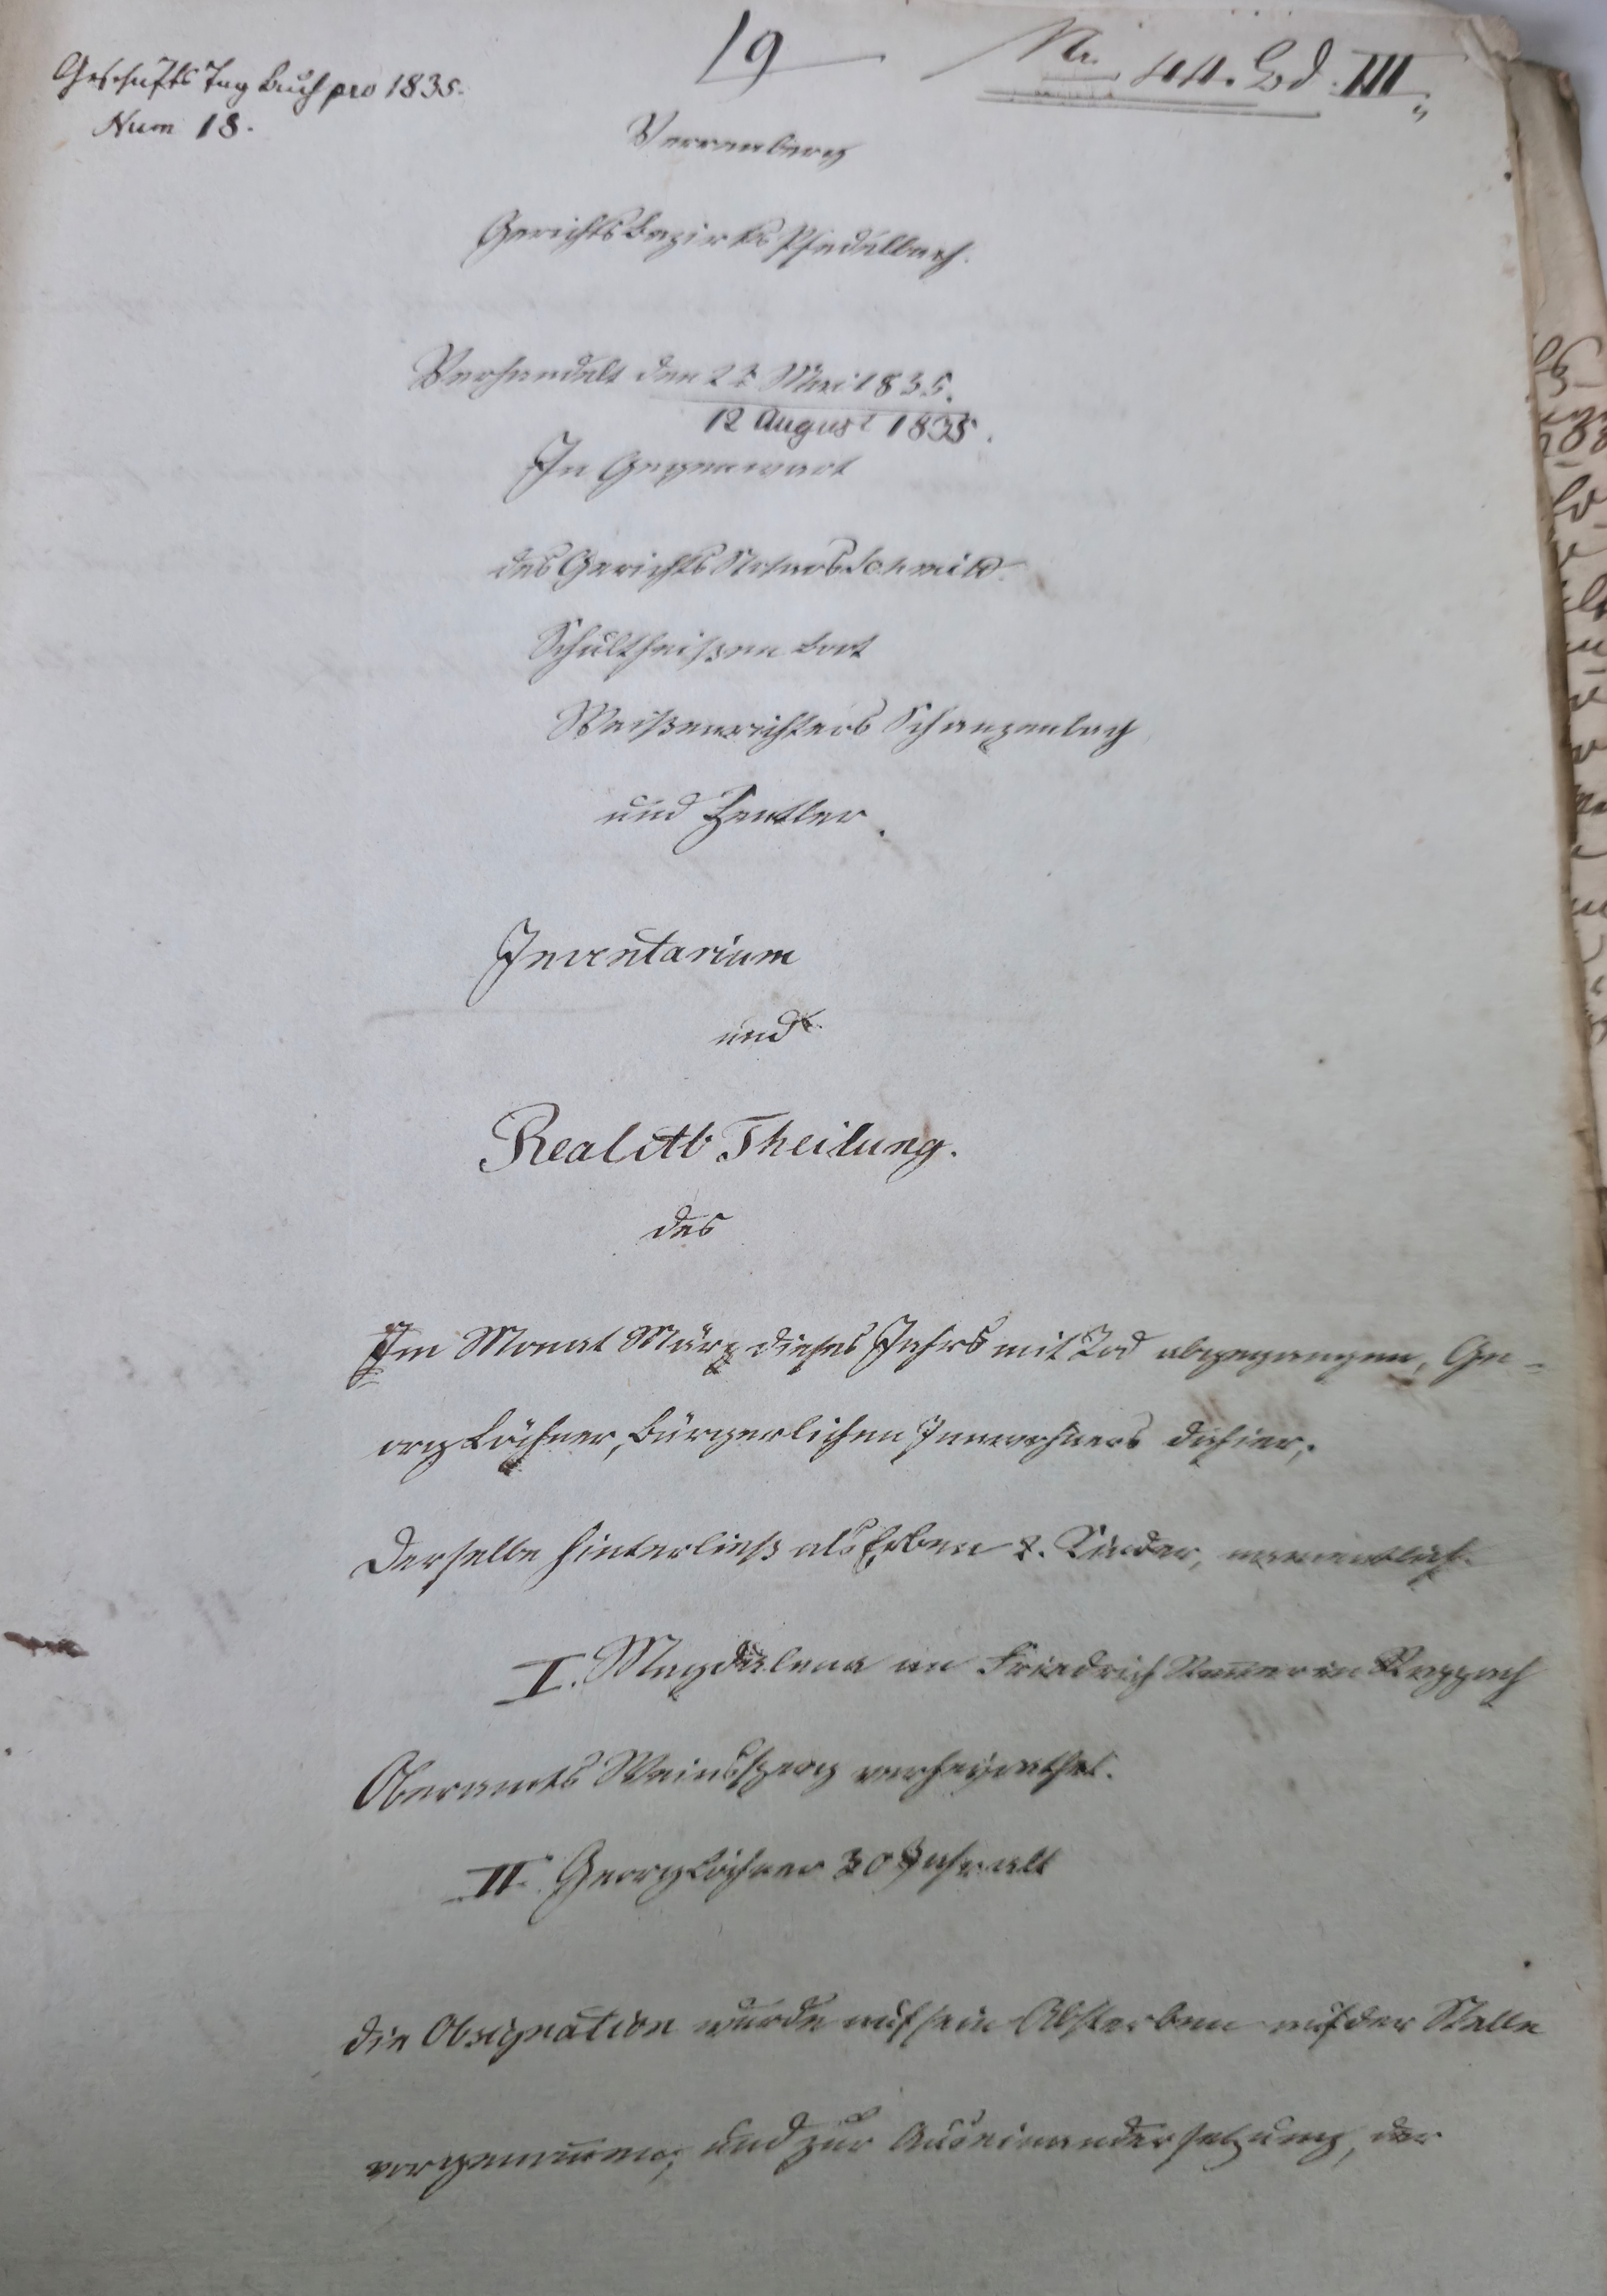 Geschäfts Tag Buch pro 1835.
Num 18.
19
Nr. 44. Bd. III
Verrenberg
Gerichtsbezirks Pfedelbach.
Verhandelt den Mai 1835.
12 August 1835.
In Gegenwart
des Gerichts Notars Schmid
Schultheißen Bort
Waißenrichters Schanzenbach
und
Inventarium
und
Realitt Theilung.
des
Im Monat März dieses Jahrs mit Tod abgegangen, Ge-
org Löchner, bürgerlichen Innwohners dahier,
Derselbe hinterließ als Erben 2. Kinder, namentlich
I. Magdalena an Friedrich in
Oberamts Weinsperg verheyrathet.
II. Georg Löchner 30 Jahr alt
die Obsignation wurde auf sein Absterben auf der Stelle
vorgenommen, und zur Auseinandersetzung, der